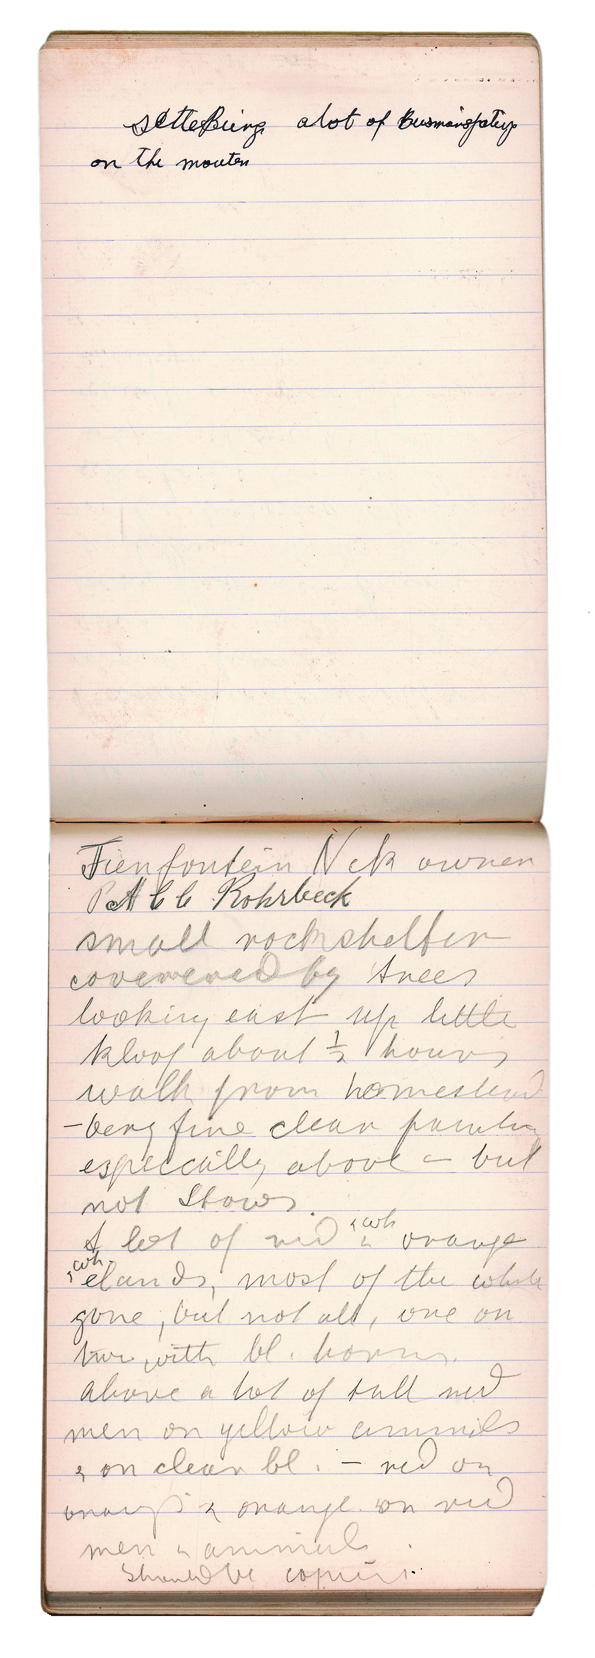 a lot of
on the mouten
Fienfontein Nek owner
P A C C Rohrbeck
small rockshelter
coverered by trees
looking east up little
kloof about ½ hours
walk from homestead
- very fine clear
especcially above - but
not
A lot of red & wh orange
& wh elands, most of the white
gone, but not all, one or
two with bl. horns.
above a lot of tall red
men on yellow animals
& on clear bl. - red on
orange & orange on red
men & animals.
Should be copied.